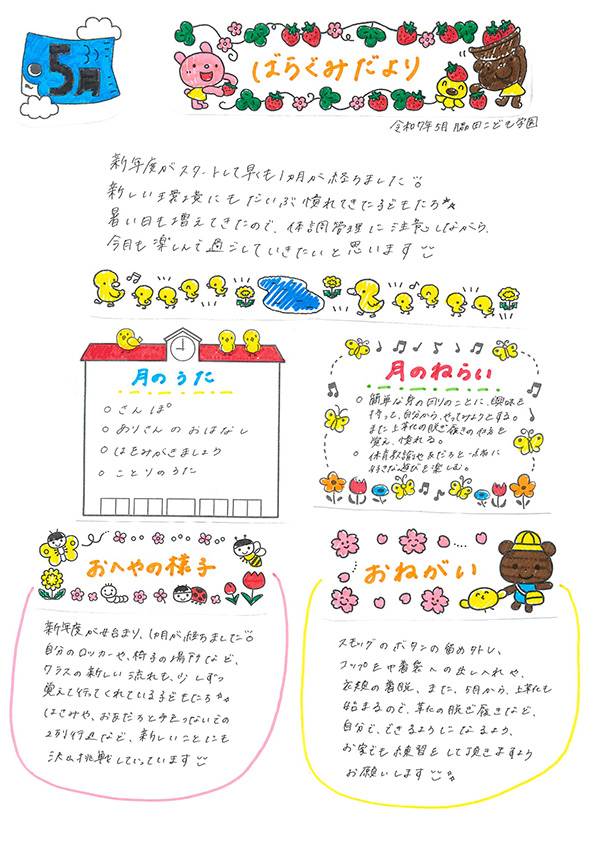 5月
ばらぐみだより
令和7年5月 脇田こども学園
新年度がスタートして早くも1ヵ月が経ちました。
新しい環境にもだいぶ慣れてきた子どもたち
暑い日も増えてきたので、体調管理に注意しながら、
今月も楽しんで過ごしていきたいと思います
月のうた
○さんぽ
○ありさんのおはなし
○はをみがきましょう
○ことりのうた
月のねらい
○簡単な身の回りのことに、興味を
持って、自分から、やってみようとする。
また上靴の脱ぎ履きのやり方を
覚え、慣れる。
○体育教諭や友だちと一緒に
好きな遊びを楽しむ。
おへやの様子
新年度が始まり、1ヵ月が経ちました。
自分のロッカーや、椅子の場所など、
クラスの新しい流れも、少しずつ
覚えて行ってくれている子どもたち
はさみや、お友だちと手をつないでの
2列行進など、新しいことにも
沢山挑戦していっています
おねがい
スモッグのボタンの留め外し、
コップを巾着袋への出し入れや、
衣類の着脱、また、5月から、上靴も
始まるので、靴の脱ぎ履きなど、
自分で、できるようになるよう、
お家でも練習をして頂きますよう
お願いします